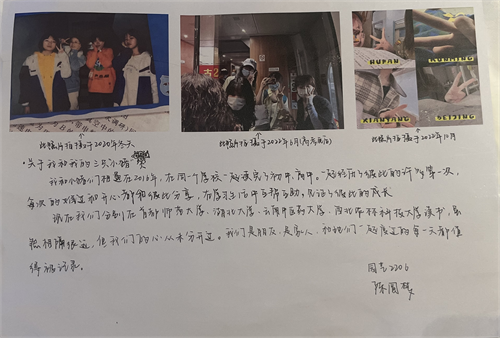 WUHAN
KUNMING
XIANYANG
BEIJING
此照片拍摄于2020年冬天
此照片拍摄于2022年6月(高考前后)
此照片拍摄于2022年11月
·关于我和我的三只小猪
我和小猪们相遇在2016年,在同一个学校一起读完了初中、高中。一起经历了彼此的许多第一次,
每次的难过和开心都和彼此分享,在学习生活中互帮互助,见证了彼此的成长
现在我们分别在首都师范大学、湖北大学、云南中医药大学、西北农林科技大学读书,虽
然相隔很远,但我们的心从未分开过。我们是朋友,是家人,和她们一起度过的每一天都值
得被记录。
2206